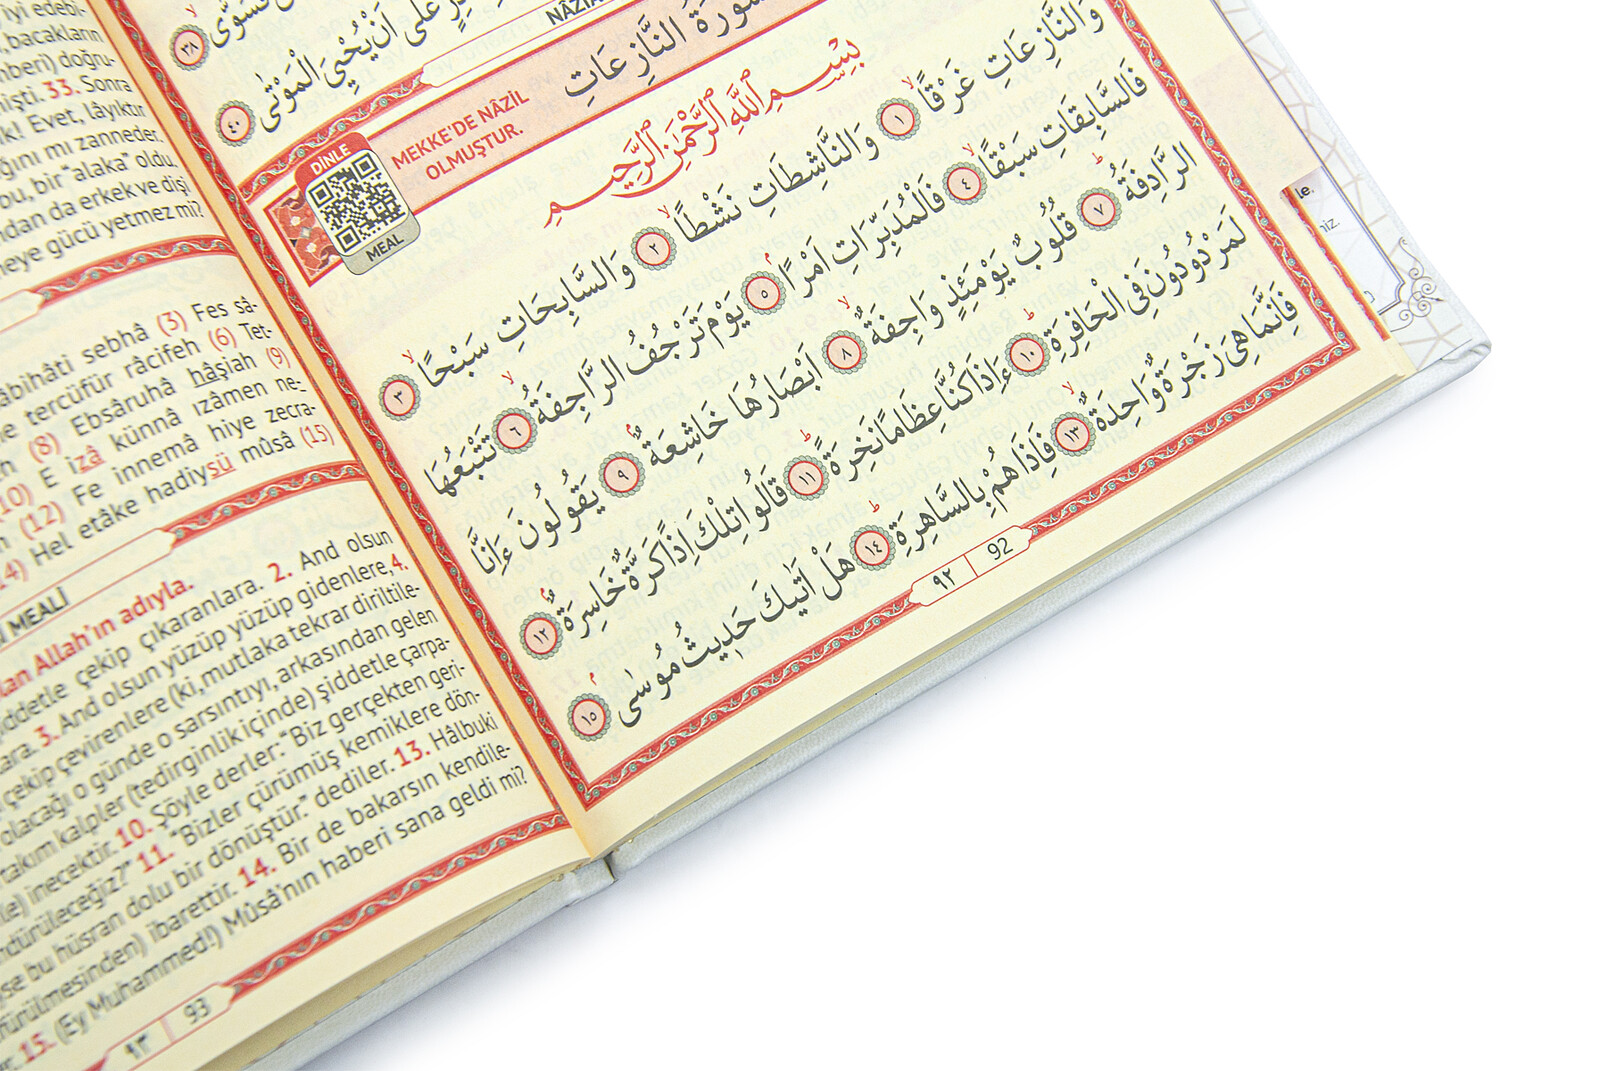 فَسَوّٰىۙ ﴿٣٨﴾
عَلٰٓى اَنْ يُحْيِيَ الْمَوْتٰى ﴿٤٠﴾
سُورَةُ النَّازِعَاتِ
MEKKE'DE NÂZİL
OLMUŞTUR.
DİNLE
MEAL
بِسْمِ اللّٰهِ الرَّحْمٰنِ الرَّحِيمِ
وَالنَّازِعَاتِ غَرْقًاۙ ﴿١﴾ وَالنَّاشِطَاتِ نَشْطًاۙ ﴿٢﴾ وَالسَّابِحَاتِ سَبْحًاۙ ﴿٣﴾
فَالسَّابِقَاتِ سَبْقًاۙ ﴿٤﴾ فَالْمُدَبِّرَاتِ اَمْرًاۢ ﴿٥﴾ يَوْمَ تَرْجُفُ الرَّاجِفَةُۙ ﴿٦﴾ تَتْبَعُهَا
الرَّادِفَةُۜ ﴿٧﴾ قُلُوبٌ يَوْمَئِذٍ وَاجِفَةٌۙ ﴿٨﴾ اَبْصَارُهَا خَاشِعَةٌۢ ﴿٩﴾ يَقُولُونَ ءَاِنَّا
لَمَرْدُودُونَ فِي الْحَافِرَةِۜ ﴿١٠﴾ ءَاِذَا كُنَّا عِظَامًا نَخِرَةًۜ ﴿١١﴾ قَالُوا تِلْكَ اِذًا كَرَّةٌ خَاسِرَةٌۢ ﴿١٢﴾
فَاِنَّمَا هِيَ زَجْرَةٌ وَاحِدَةٌۙ ﴿١٣﴾ فَاِذَا هُمْ بِالسَّاهِرَةِۜ ﴿١٤﴾ هَلْ اَتٰيكَ حَدِيثُ مُوسٰىۢ ﴿١٥﴾
٩٢ | 92
iyi edebi-
bacakların
doğru-
33. Sonra
Evet, lâyıktır
mı zanneder.
bir "alaka" oldu.
da erkek ve dişi
gücü yetmez mi?
sebhâ (3) Fes sâ-
tercüfür râcifeh (6) Tet-
(8) Ebsâruhâ hâşiah (9)
(10) E izâ künnâ ızâmen ne-
(12) Fe innemâ hiye zecra-
Hel etâke hadiysü mûsâ (15)
MEALİ
Allah'ın adıyla.
çekip çıkaranlara. 2. And olsun
3. And olsun yüzüp yüzüp gidenlere, 4.
çekip çevirenlere (ki, mutlaka tekrar diriltile-
o günde o sarsıntıyı, arkasından gelen
takım kalpler (tedirginlik içinde) şiddetle çarpa-
inecektir. 10. Şöyle derler: "Biz gerçekten geri-
11. "Bizler çürümüş kemiklere dön-
bu hüsran dolu bir dönüştür." dediler. 13. Hâlbuki
ibarettir. 14. Bir de bakarsın kendile-
15. (Ey Muhammed!) Mûsâ'nın haberi sana geldi mi?
٩٣ | 93
le.
niz.